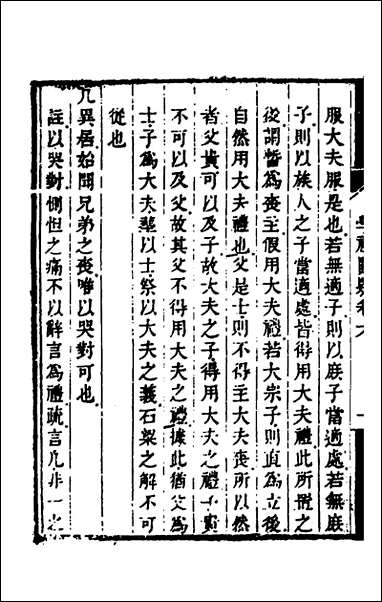 服大夫服是也若無適子則以庶子當適處若無庶
子則以族人之子當適處皆得用大夫禮此所置之
後謂暫為喪主假用大夫禮若大宗子則直為立後
自然用大夫禮也父是士則不得主大夫喪所以然
者父貴可以及子故大夫之子得用大夫之禮子貴
不可以及父故其父不得用大夫之禮據此猶父為
士子為大夫葬以士祭以大夫之義石梁之解不可
從也
凡異居始聞兄弟之喪唯以哭對可也
註以哭對惻怛之痛不以辭言為禮疏言凡非一之